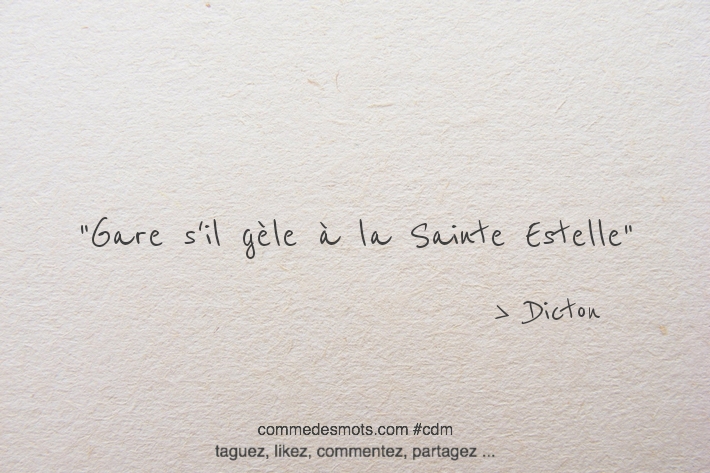 "Gare s'il gèle à la Sainte Estelle"
> Dicton
commedesmots.com #cdm
taguez, likez, commentez, partagez ...